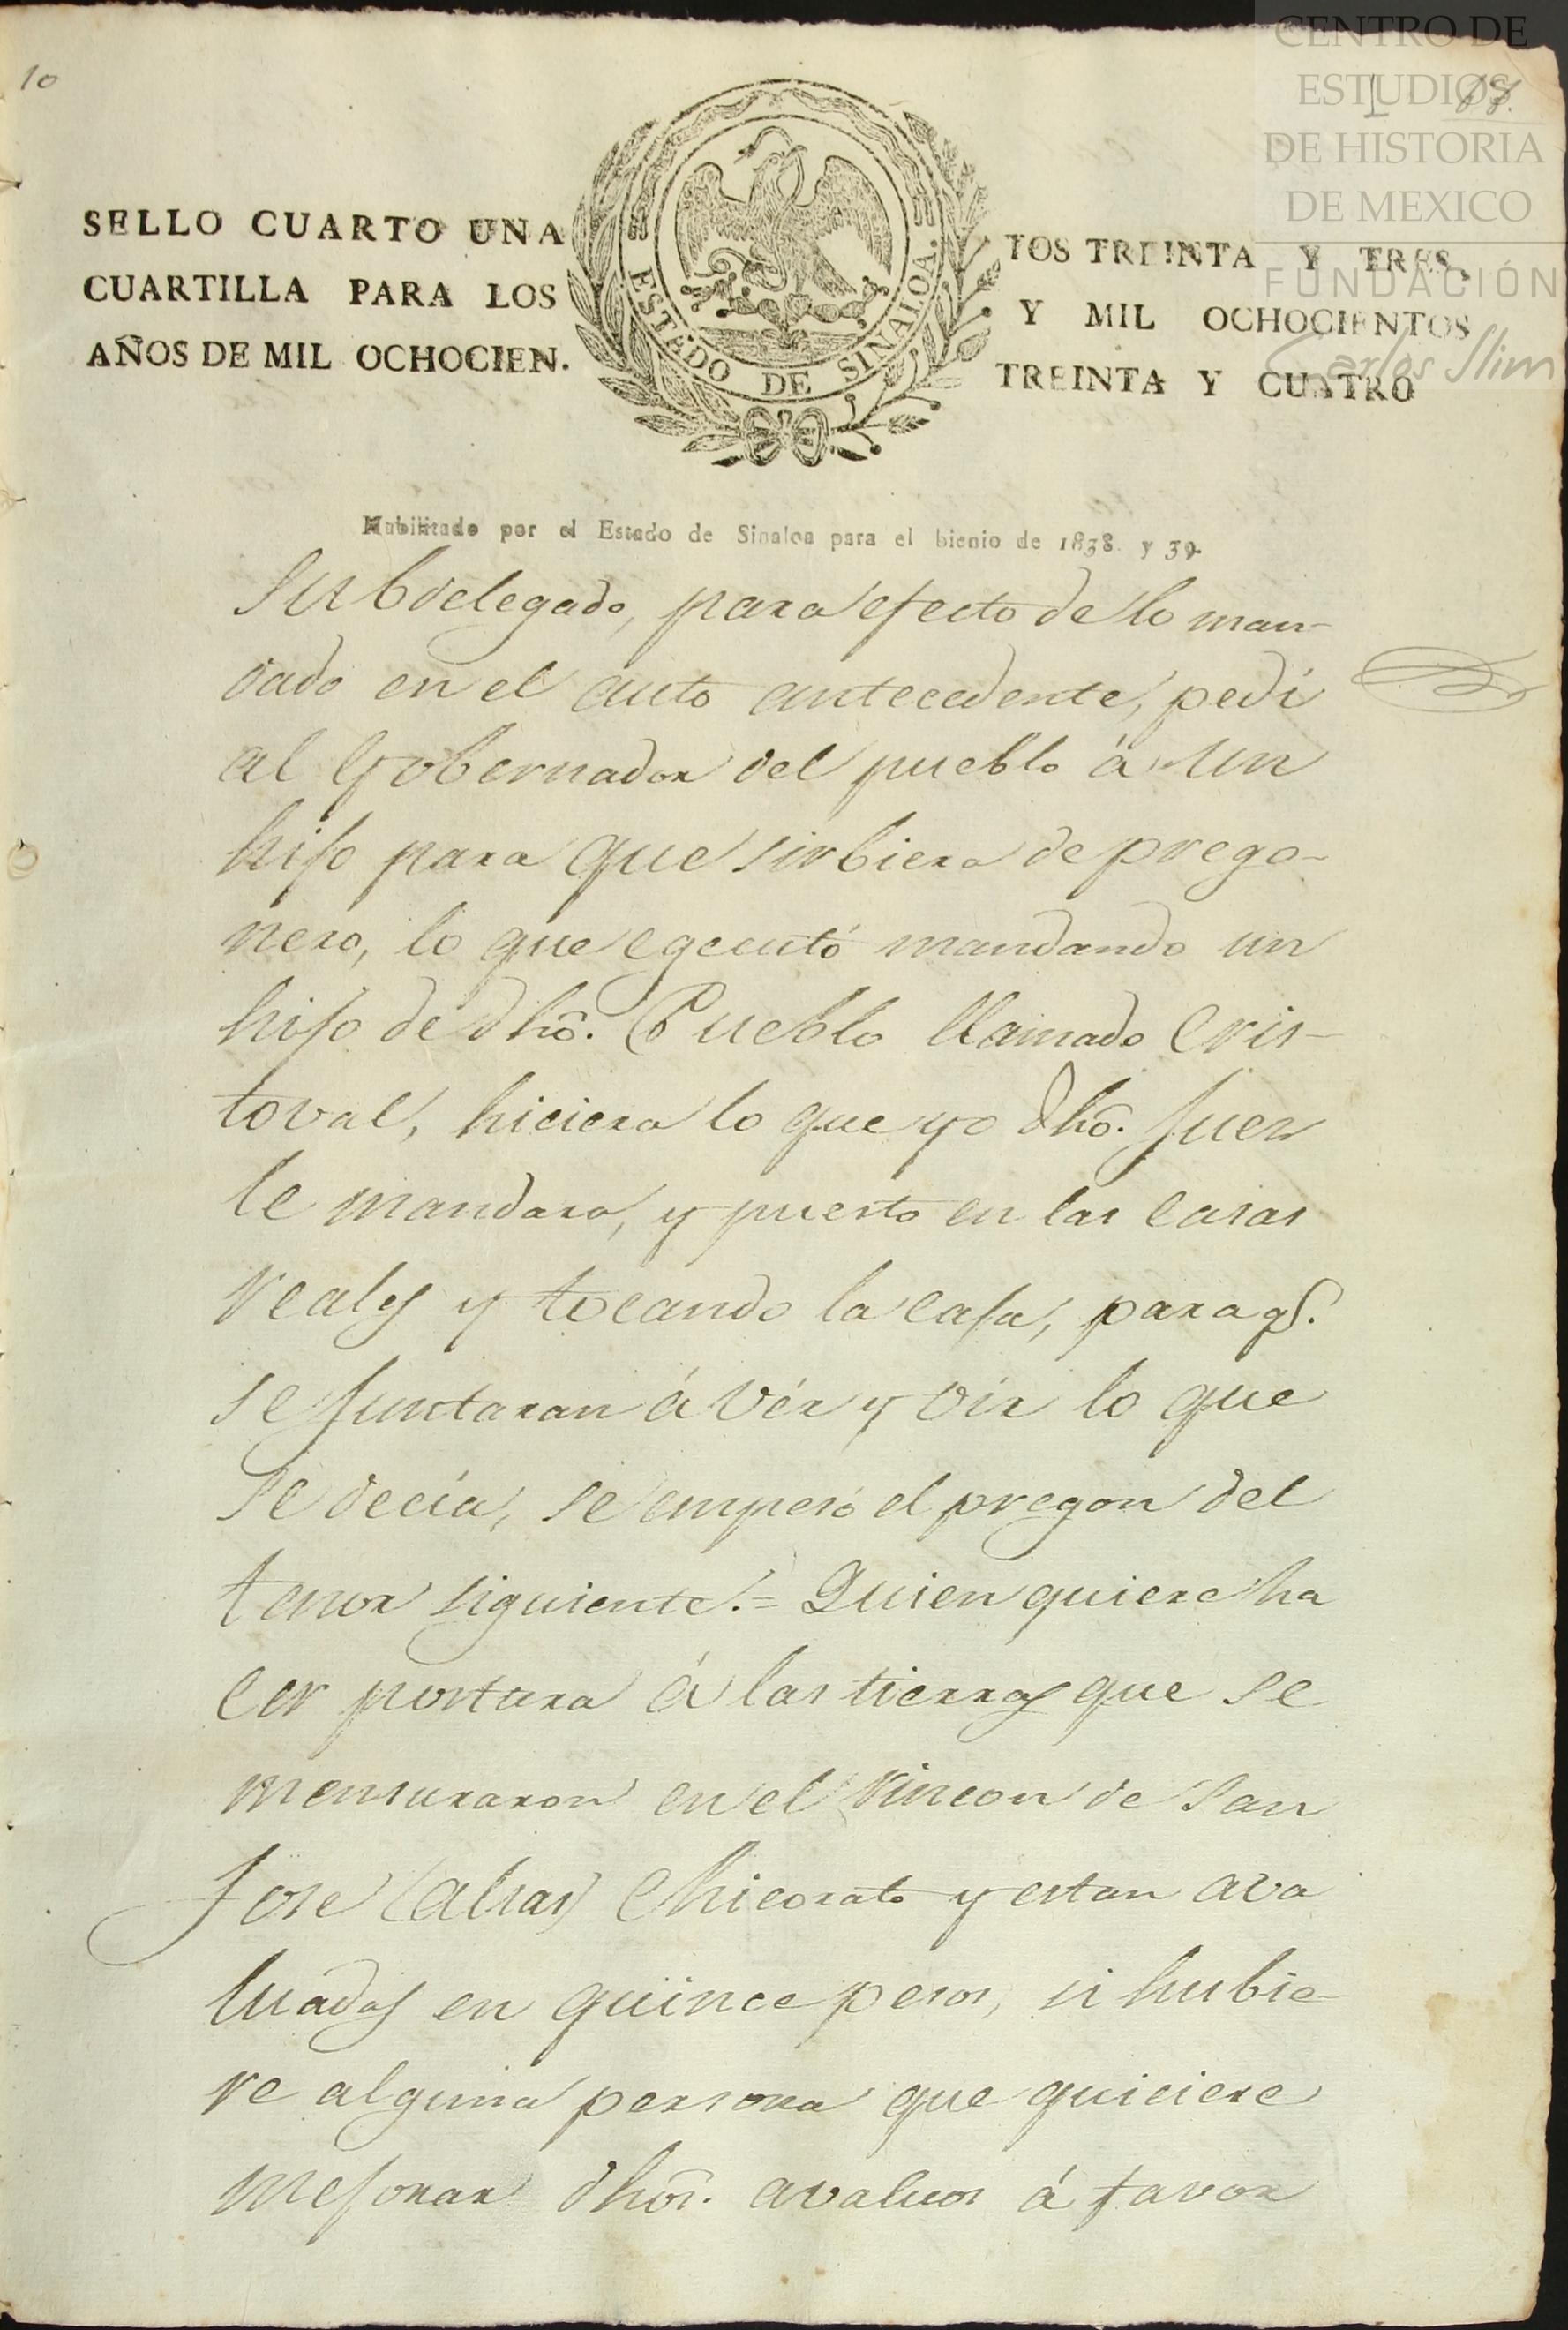 10
CENTRO DE
ESTUDIOS
DE HISTORIA
DE MEXICO
FUNDACIÓN
Carlos Slim
SELLO CUARTO UNA
CUARTILLA PARA LOS
AÑOS DE MIL OCHOCIEN.
ESTADO DE SINALOA.
TOS TREINTA Y TRES,
Y MIL OCHOCIENTOS
TREINTA Y CUATRO
Habilitado por el Estado de Sinaloa para el bienio de 1838 y 39.
Subdelegado, para efecto de lo man-
dado en el auto antecedente, pedi
al Gobernador del pueblo á un
hijo para que sirbiera de prego-
nero, lo que egecutó mandando un
hijo de dho. Pueblo llamado Cris-
toval, hiciera lo que yo dho. Juez
le mandara, y puesto en las casas
reales y tocando la caja, para q.e
se juntaran á vér y oír lo que
se decía, se empesó el pregon del
tenor siguiente.= Quien quiere ha
cer postura á las tierras que se
mensuraron en el rincon de San
Jose (alias) Chicorato y estan ava
luadas en quince pesos, si hubie-
re alguna persona que quiciere
mejorar dhos. avaluos á favor